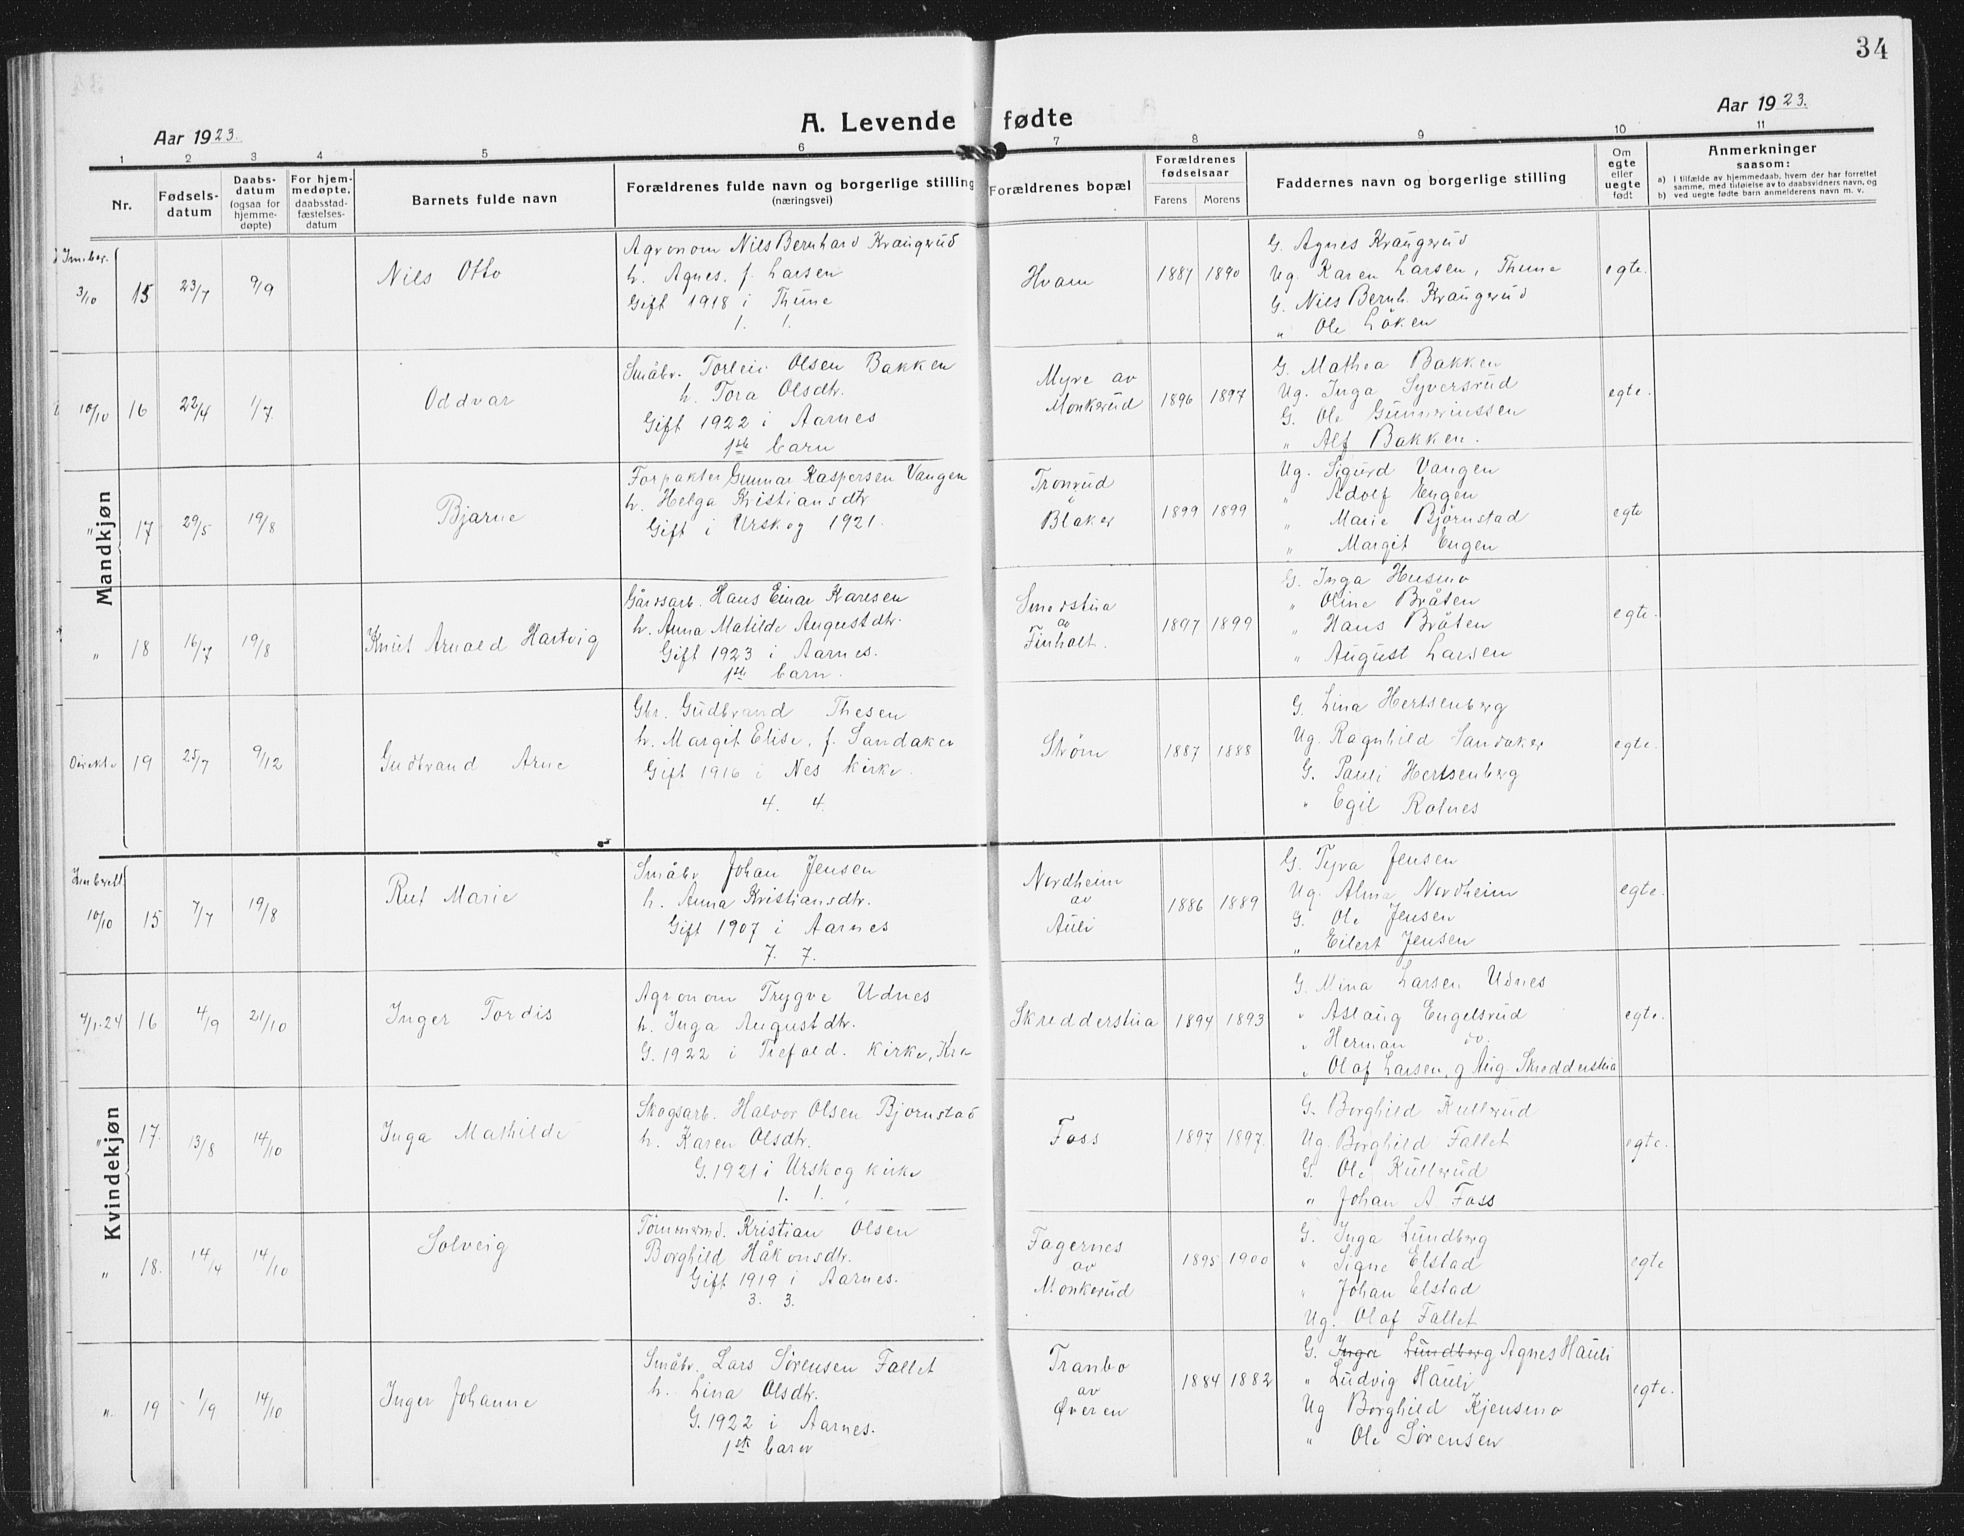 34
Aar 1923.
A. Levende fødte
Aar 1923.
1 2 3 4 5 6 7 8 9 10 11
Nr.
Fødsels-
datum
Daabs-
datum
(ogsaa for
hjemme-
døpte)
For hjem-
medøpte,
daabsstad-
fæstelses-
datum
Barnets fulde navn
Forældrenes fulde navn og borgerlige stilling
(næringsvei)
Forældrenes bopæl
Forældrenes
fødselsaar
Farens Morens
Faddernes navn og borgerlige stilling
Om
egte
eller
uegte
født
Anmerkninger
saasom:
a) I tilfælde av hjemmedaab, hvem der har forrettet
samme, med tilføielse av to daabsvidners navn, og
b) ved uegte fødte barn anmelderens navn m. v.
Mandkjøn
Innber.
3/10 15 23/7 9/9
Nils Otto
Agronom Nils Bernhard Kraugerud
h. Agnes, f. Larsen
Gift 1918 i Thune
1. 1.
Hvam
1887 1890
G. Agnes Kraugerud
Ug. Karen Larsen, Thune
G. Nils Bernh. Kraugerud
" Ole Løken
egte.
10/10 16 22/4 1/7.
Oddvar
Småbr. Torleiv Olsen Bakken
h. Tora Olsdtr.
Gift 1922 i Aarnes
1ste barn
Myre av
Monkerud
1896 1897
G. Mathea Bakken
Ug. Inga Syversrud
G. Ole Gunneriussen
" Alf Bakken.
egte.
" 17 29/5 19/8
Bjarne
Forpakter Gunnar Kaspersen Vangen
h. Helga Kristiansdtr
Gift i Urskog 1921.
Tronrud
i
Blaker
1899 1899
Ug. Sigurd Vangen
" Adolf Engen
" Marie Bjørnstad
" Margit Engen
egte
" 18 16/7 19/8
Knut Arnold Hartvig
Gårdsarb. Hans Einar Karlsen
h. Anna Matilde Augustdtr.
Gift 1923 i Aarnes.
1ste barn.
Smedstua
av
Finholt.
1897 1899
G. Inga Husmo
" Oline Bråten
" Hans Bråten
" August Larsen
egte.
Direkte 19 25/7 9/12
Gudbrand Arne
Gbr. Gudbrand Thesen
h. Margit Elise, f. Sandaker
Gift 1916 i Nes kirke.
4. 4.
Strøm
1887 1888
G. Lina Hertsenberg
Ug. Ragnhild Sandaker
G. Pauli Hertsenberg
" Egil Rotnes
egte.
Kvindekjøn
Innberett.
10/10 15 7/7 19/8
Rut Marie
Småbr Johan Jensen
h. Anna Kristiansdtr.
Gift 1907 i Aarnes
7. 7.
Nordheim
av
Auli
1886 1889
G. Tyra Jensen
Ug. Alma Nordheim
G. Ole Jensen
" Eilert Jensen
egte.
4/1-24 16 4/9 21/10
Inger Tordis
Agronom Trygve Udnes
h. Inga Augustdtr.
G. 1922 i Trefold. kirke, Kra
Skredderstua
1894 1893
G. Mina Larsen Udnes
" Aslaug Engelsrud
" Herman do.
" Olaf Larsen, g Aug. Skredderstua
egte.
" 17. 13/8 14/10
Inga Mathilde
Skogsarb. Halvor Olsen Bjørnstad
h. Karen Olsdtr.
G. 1921 i Urskog kirke
1. 1.
Foss
1897 1897.
G. Borghild Kullerud
Ug. Borghild Fallet
G. Ole Kullerud
" Johan A Foss
egte.
" 18. 14/4 14/10
Solveig
Tømmermd. Kristian Olsen
Borghild Håkonsdtr.
Gift 1919 i Aarnes.
3. 3.
Fagernes
av
Monkerud
1895 1900
G. Inga Lundberg
" Signe Elstad
" Johan Elstad
Ug. Olaf Fallet
egte
" 19 1/9 14/10
Inger Johanne
Småbr. Lars Sørensen Fallet
h. Lina Olsdtr.
G. 1922 i Aarnes.
1ste barn
Tranbo
av
Øveren
1884 1882
G. Inga Lundberg Agnes Hauli
" Ludvig Hauli
Ug Borghild Kjensmo
" Ole Sørensen
egte.